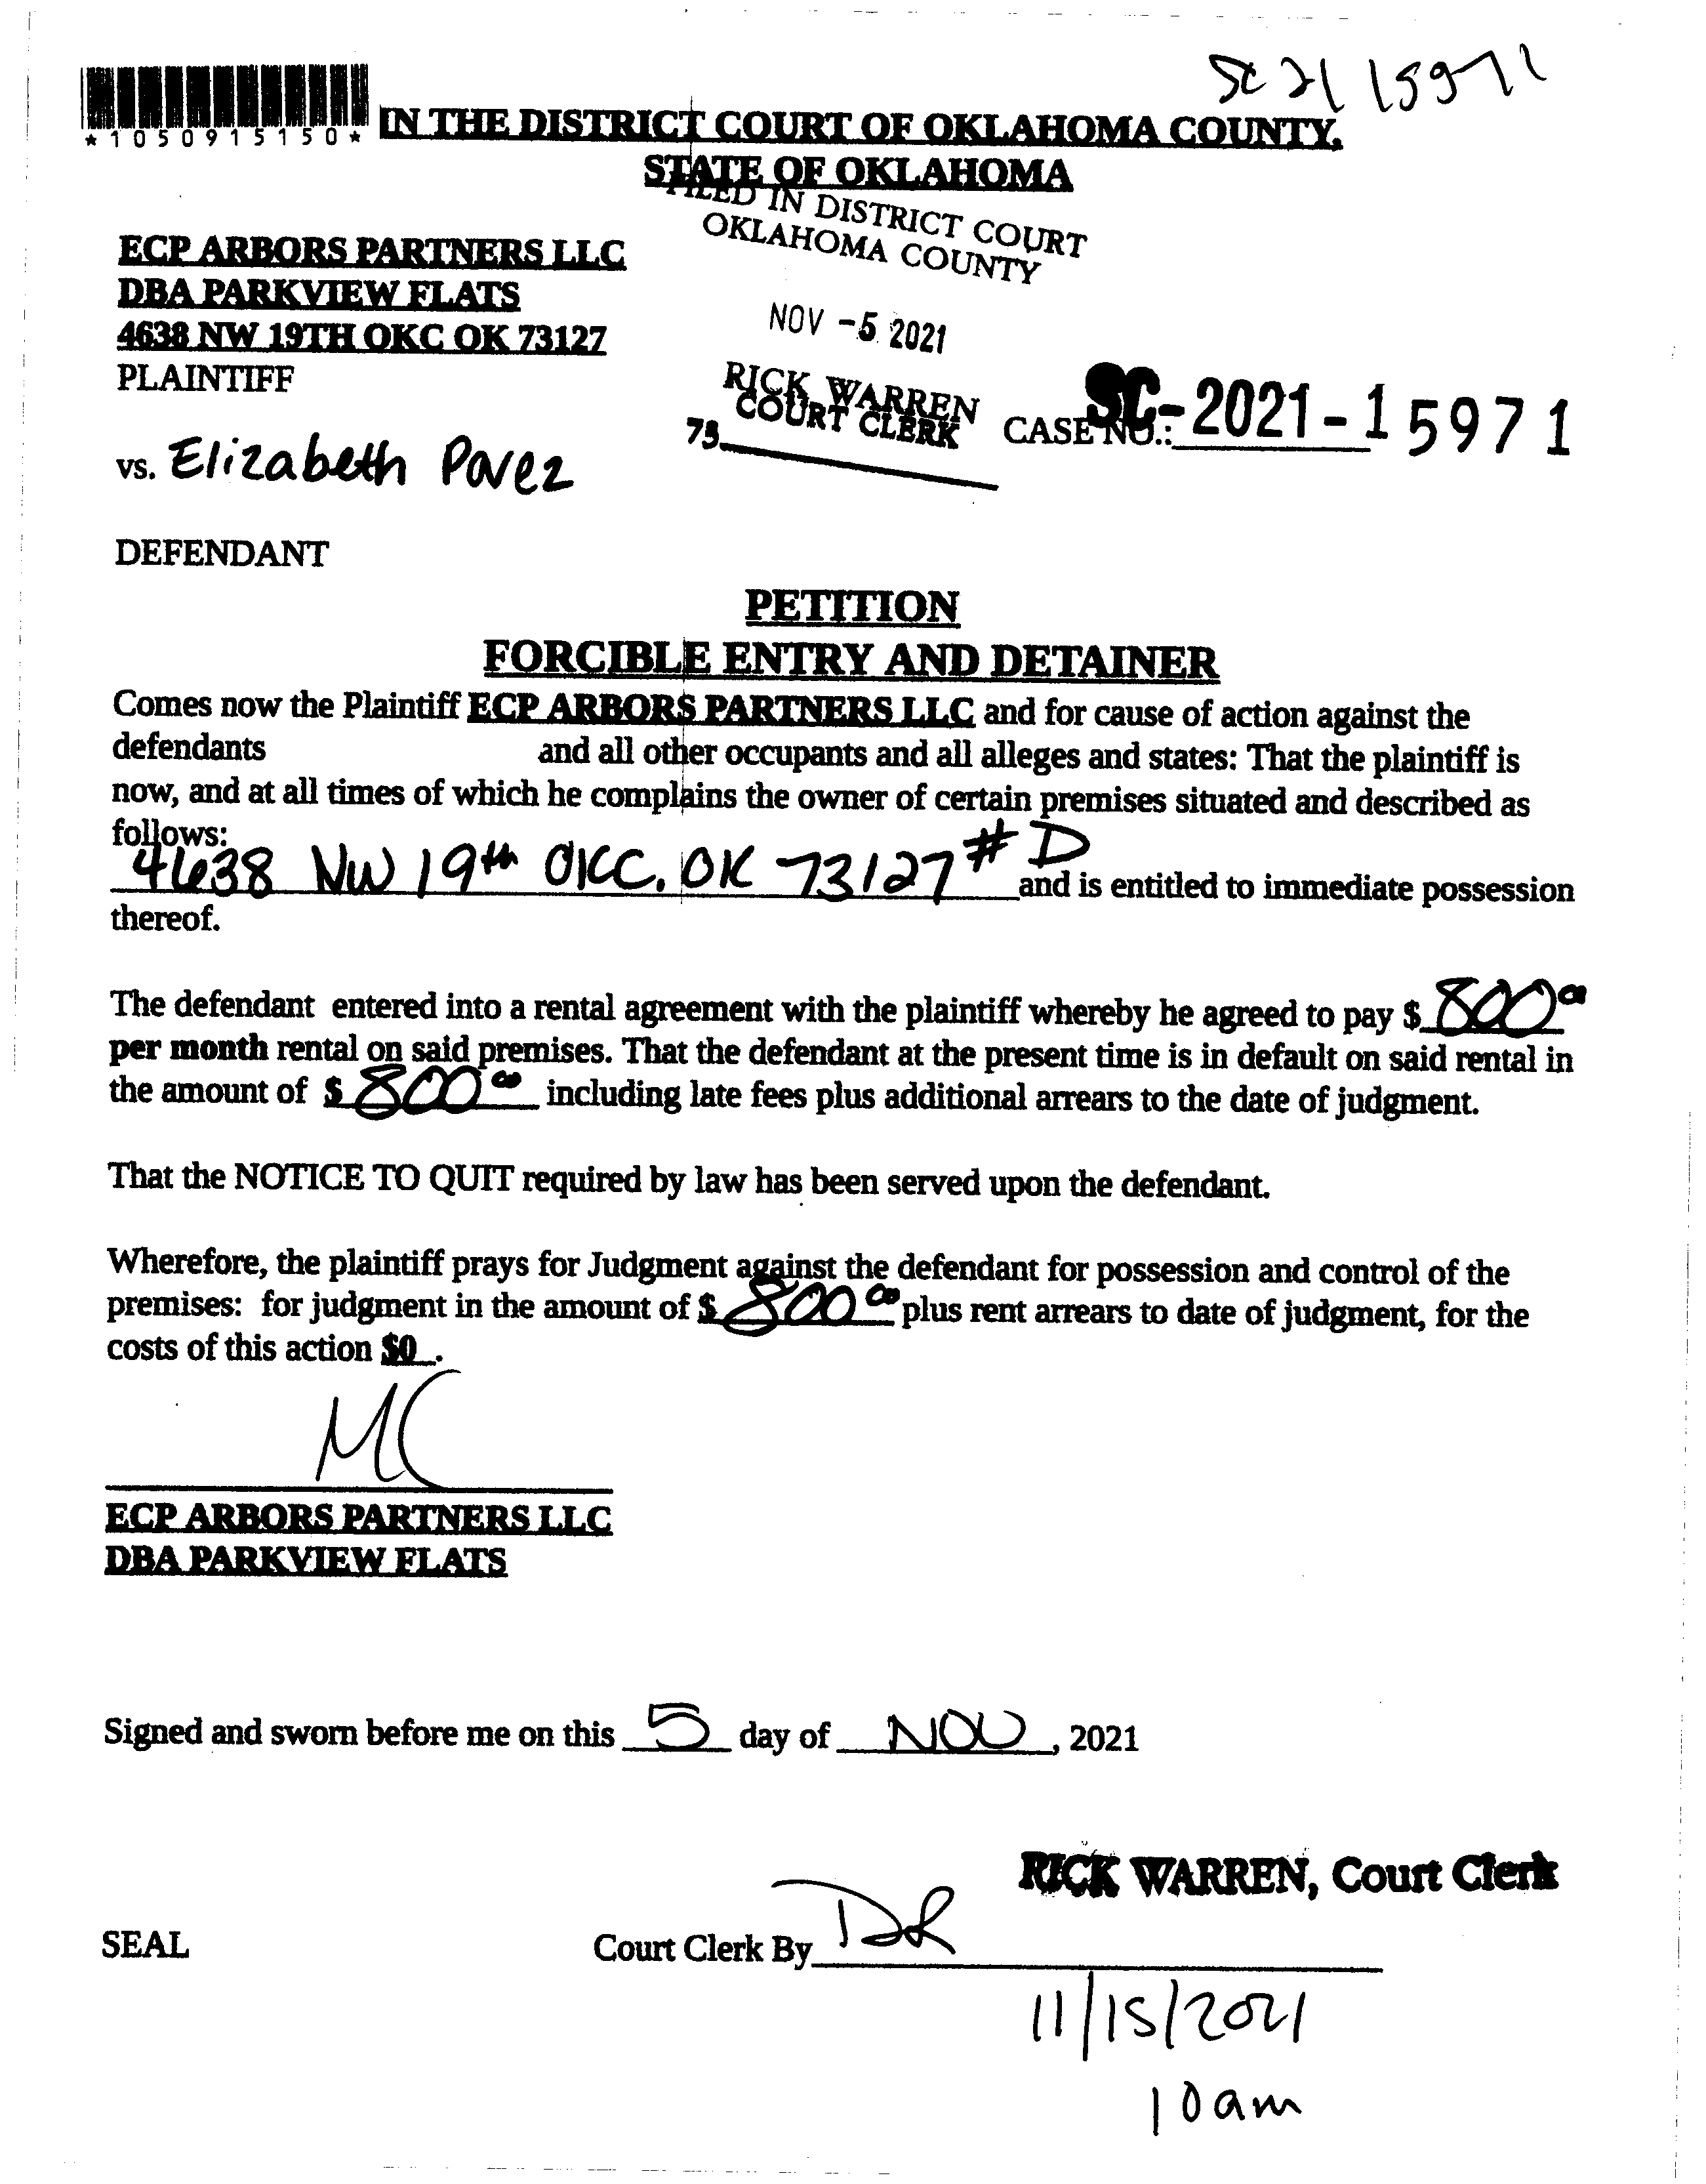 SC 21 15971
*1050915150*
IN THE DISTRICT COURT OF OKLAHOMA COUNTY,
STATE OF OKLAHOMA
FILED IN DISTRICT COURT
OKLAHOMA COUNTY
ECP ARBORS PARTNERS LLC
DBA PARKVIEW FLATS
4638 NW 19TH OKC OK 73127
PLAINTIFF
NOV -5 2021
RICK WARREN
COURT CLERK
73
CASE NO.: SC-2021-15971
vs. Elizabeth Pavez
DEFENDANT
PETITION
FORCIBLE ENTRY AND DETAINER
Comes now the Plaintiff ECP ARBORS PARTNERS LLC and for cause of action against the
defendants and all other occupants and all alleges and states: That the plaintiff is
now, and at all times of which he complains the owner of certain premises situated and described as
follows:
4638 NW 19th OKC. OK 73127 # D and is entitled to immediate possession
thereof.
The defendant entered into a rental agreement with the plaintiff whereby he agreed to pay $ 800.00
per month rental on said premises. That the defendant at the present time is in default on said rental in
the amount of $ 800.00 including late fees plus additional arrears to the date of judgment.
That the NOTICE TO QUIT required by law has been served upon the defendant.
Wherefore, the plaintiff prays for Judgment against the defendant for possession and control of the
premises: for judgment in the amount of $ 800.00 plus rent arrears to date of judgment, for the
costs of this action $0 .
MC
ECP ARBORS PARTNERS LLC
DBA PARKVIEW FLATS
Signed and sworn before me on this 5 day of NOV, 2021
RICK WARREN, Court Clerk
SEAL
Court Clerk By DR
11/15/2021
10am